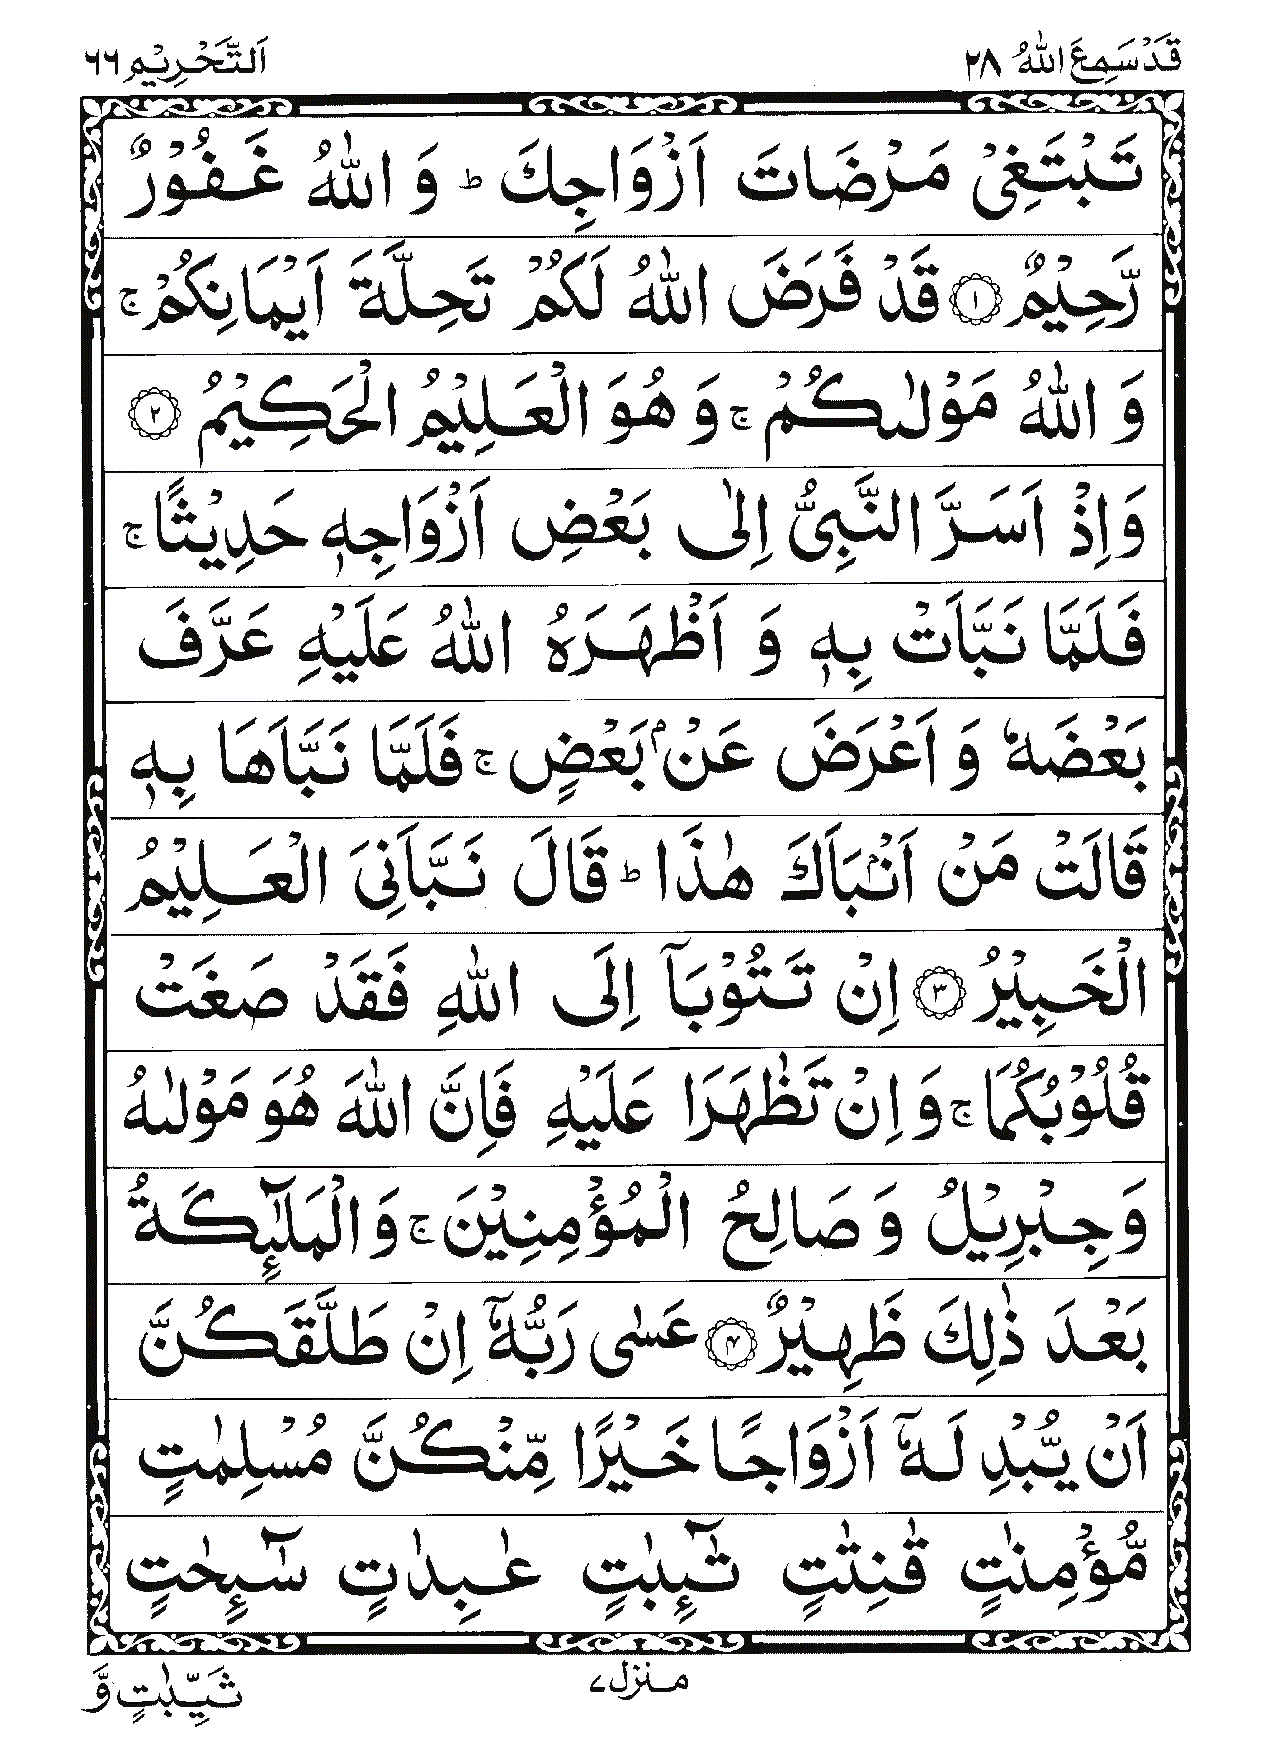 قَدْ سَمِعَ اللّٰهُ ۲۸
اَلتَّحْرِيْم ٦٦
تَبْتَغِىْ مَرْضَاتَ اَزْوَاجِكَ ؕ وَ اللّٰهُ غَفُوْرٌ
رَّحِيْمٌ ﴿۱﴾ قَدْ فَرَضَ اللّٰهُ لَكُمْ تَحِلَّةَ اَيْمَانِكُمْ ۚ
وَ اللّٰهُ مَوْلٰىكُمْ ۚ وَ هُوَ الْعَلِيْمُ الْحَكِيْمُ ﴿۲﴾
وَاِذْ اَسَرَّ النَّبِىُّ اِلٰى بَعْضِ اَزْوَاجِهٖ حَدِيْثًا ۚ
فَلَمَّا نَبَّاَتْ بِهٖ وَ اَظْهَرَهُ اللّٰهُ عَلَيْهِ عَرَّفَ
بَعْضَهٗ وَ اَعْرَضَ عَنْۢ بَعْضٍ ۚ فَلَمَّا نَبَّاَهَا بِهٖ
قَالَتْ مَنْ اَنْۢبَاَكَ هٰذَا ؕ قَالَ نَبَّاَنِىَ الْعَلِيْمُ
الْخَبِيْرُ ﴿۳﴾ اِنْ تَتُوْبَاۤ اِلَى اللّٰهِ فَقَدْ صَغَتْ
قُلُوْبُكُمَا ۚ وَ اِنْ تَظٰهَرَا عَلَيْهِ فَاِنَّ اللّٰهَ هُوَ مَوْلٰىهُ
وَجِبْرِيْلُ وَ صَالِحُ الْمُؤْمِنِيْنَ ۚ وَ الْمَلٰٓئِكَةُ
بَعْدَ ذٰلِكَ ظَهِيْرٌ ﴿۴﴾ عَسٰى رَبُّهٗۤ اِنْ طَلَّقَكُنَّ
اَنْ يُّبْدِلَهٗۤ اَزْوَاجًا خَيْرًا مِّنْكُنَّ مُسْلِمٰتٍ
مُّؤْمِنٰتٍ قٰنِتٰتٍ تٰٓئِبٰتٍ عٰبِدٰتٍ سٰٓئِحٰتٍ
منزل ۷
ثَيِّبٰتٍ وَّ